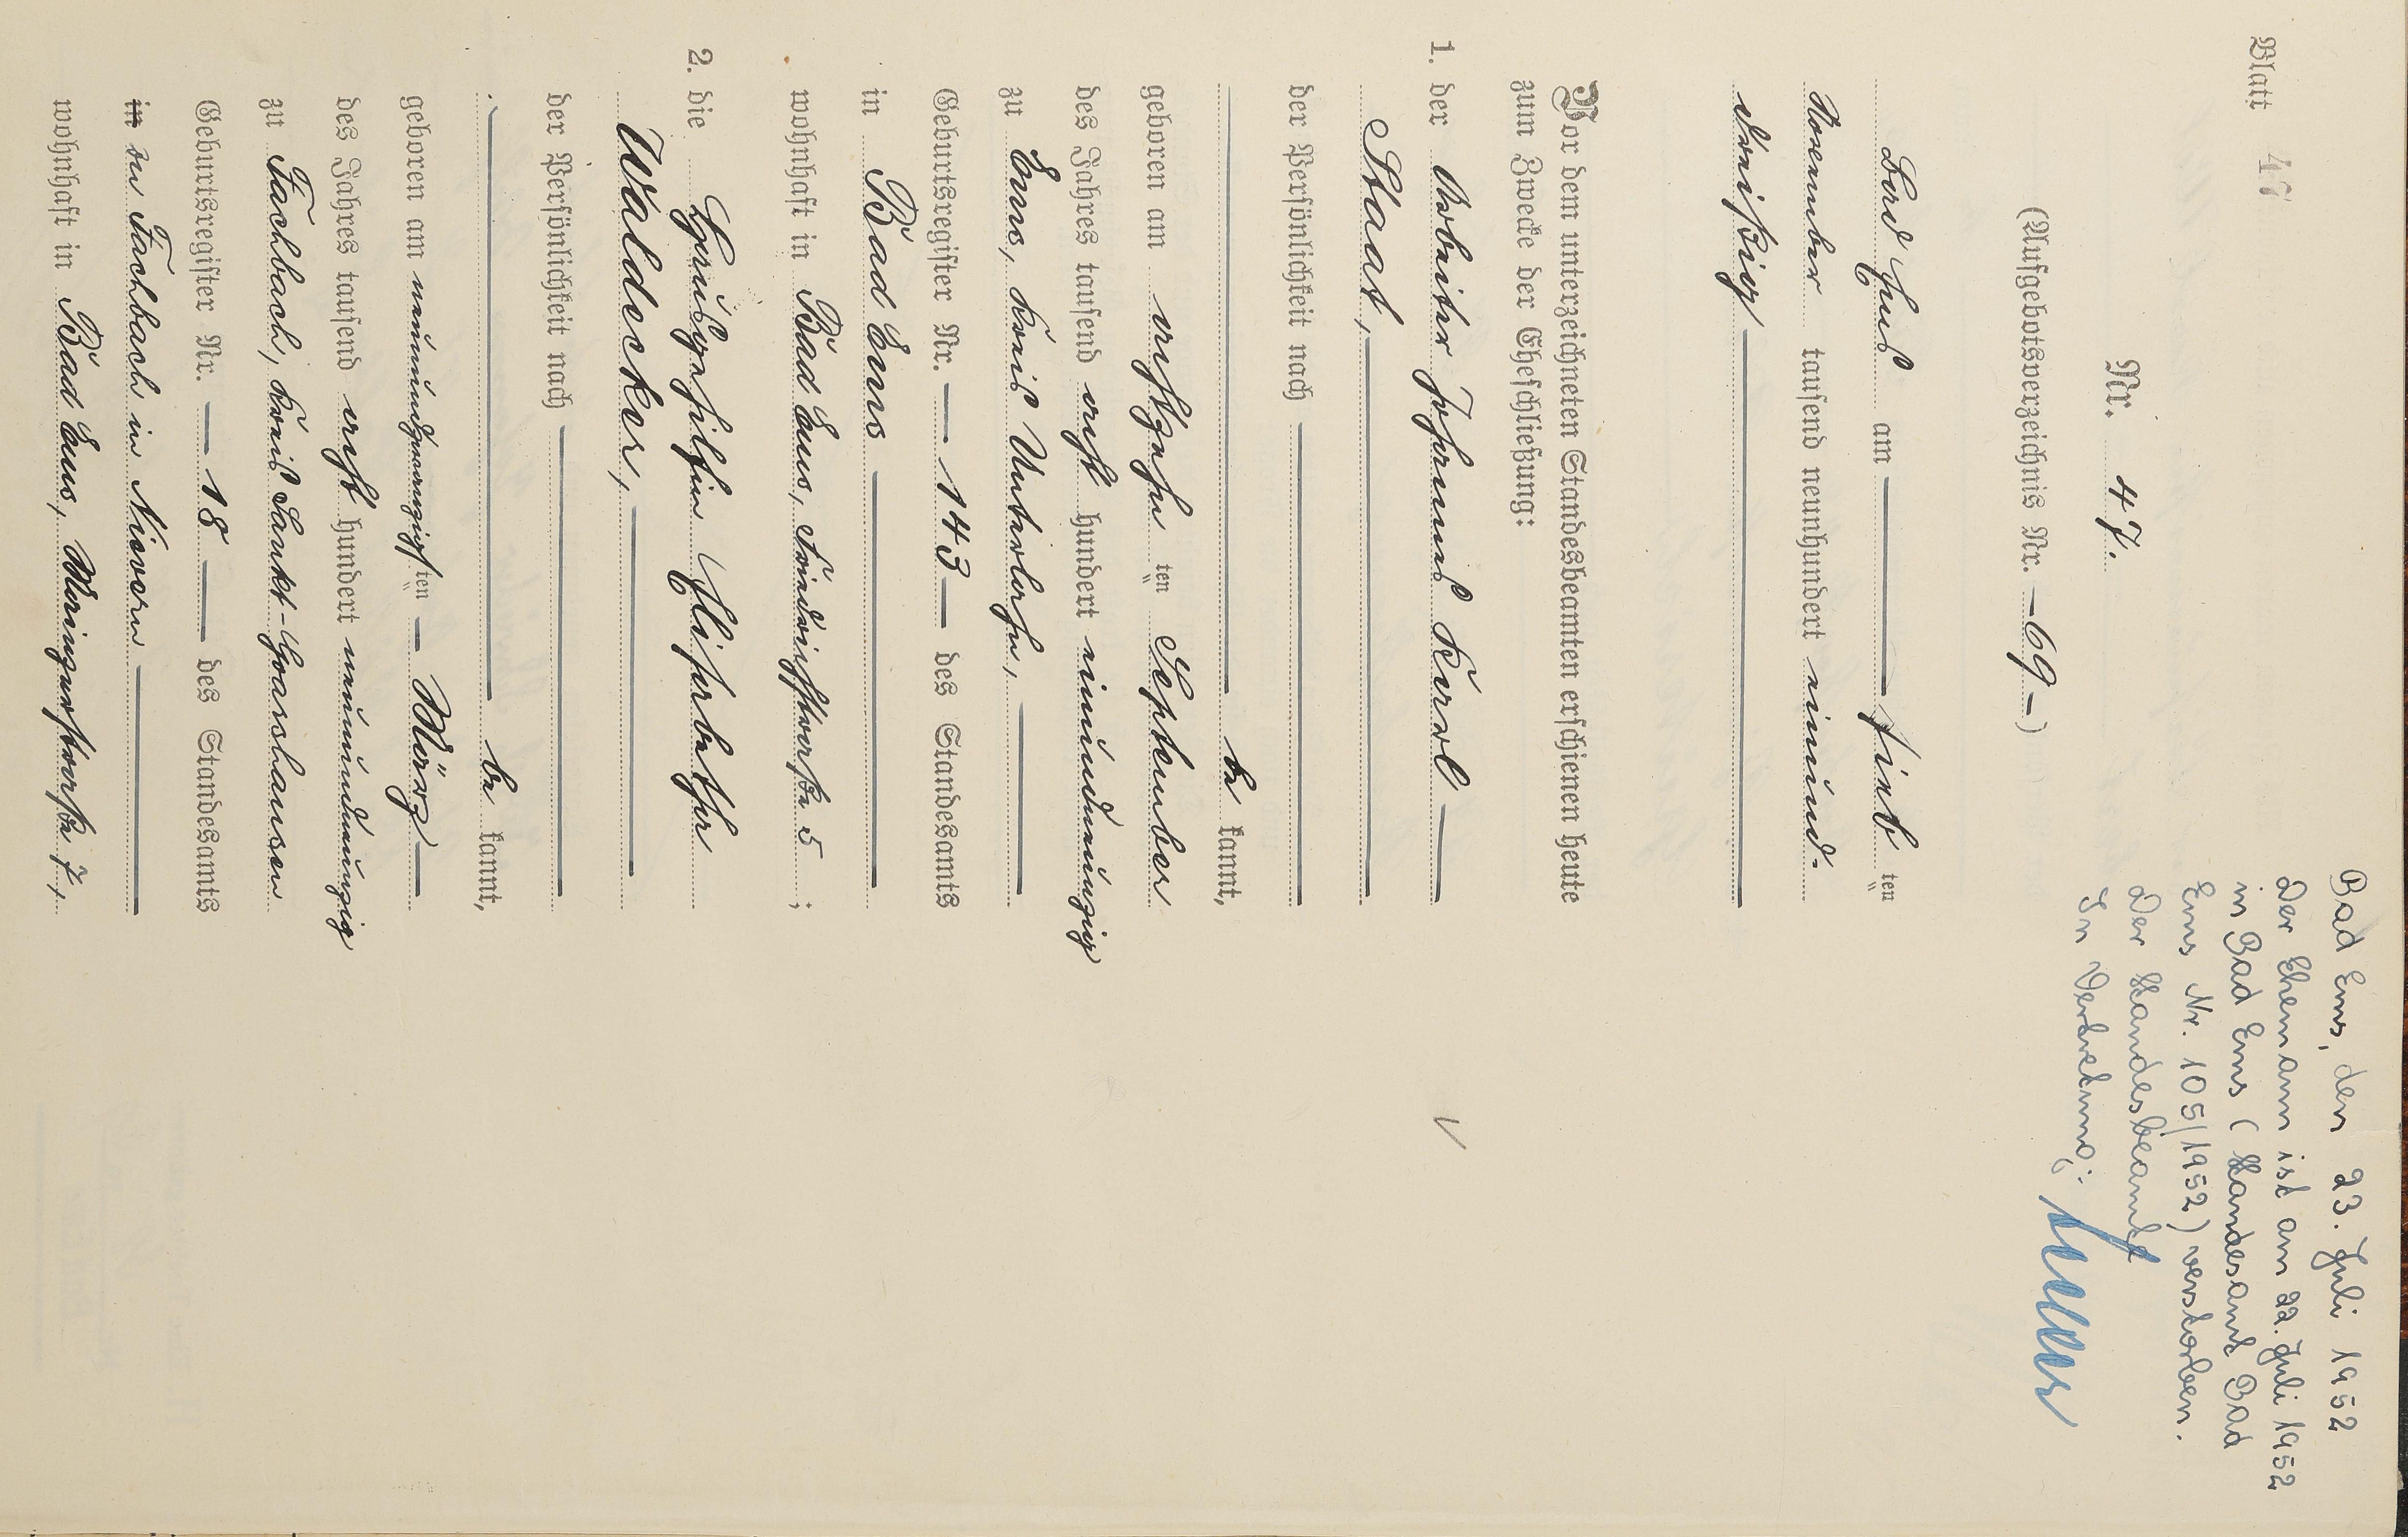 Blatt 47
Nr. 47.
(Aufgebotsverzeichnis Nr. – 69 –)
Bad Ems am — fünf ten
November tausend neunhundert einund-
dreißig —
Vor dem unterzeichneten Standesbeamten erschienen heute
zum Zwecke der Eheschließung:
1. der Arbeiter Johann Karl —
Staat, —
der Persönlichkeit nach —
— be kannt,
geboren am achtzehn ten September
des Jahres tausend acht hundert einundneunzig
zu Ems, Kreis Unterlahn, —
Geburtsregister Nr. — 143 — des Standesamts
in Bad Ems —
wohnhaft in Bad Ems, Friedrichstraße 5 ;
2. die Elisabetha
Waldecker, —
der Persönlichkeit nach —
— be kannt,
geboren am neunundzwanzigsten — März —
des Jahres tausend acht hundert neunundneunzig
zu Fachbach, Kreis Sankt-Goarshausen
Geburtsregister Nr. — 18 — des Standesamts
in zu Fachbach in Nievern —
wohnhaft in Bad Ems, 7,
Bad Ems, den 23. Juli 1952
Der Ehemann ist am 22. Juli 1952
in Bad Ems (Standesamt Bad
Ems Nr. 105/1952) verstorben.
Der Standesbeamte
In Vertretung: